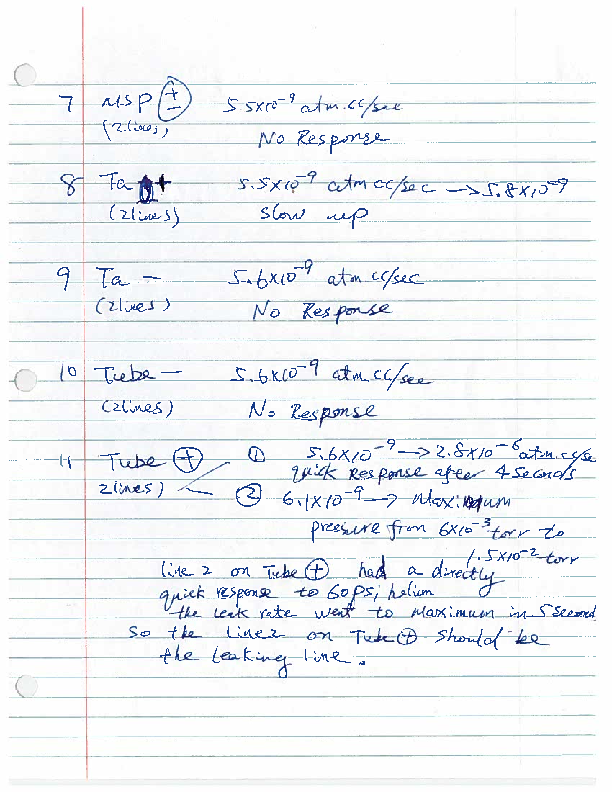 7 MSP ± 5.5x10⁻⁹ atm.cc/sec
(2 lines) No Response
8 Ta + 5.5x10⁻⁹ atm cc/sec —> 5.8x10⁻⁹
(2 lines) slow up
9 Ta — 5.6x10⁻⁹ atm cc/sec
(2 lines) No Response
10 Tube — 5.6x10⁻⁹ atm.cc/sec
(2 lines) No Response
11 Tube ⊕ ① 5.6x10⁻⁹ —> 2.8x10⁻⁶ atm.cc/se
2 lines) quick Response after 4 seconds
② 6.1x10⁻⁹ —> Maximum
pressure from 6x10⁻³ torr to
1.5x10⁻² torr
line 2 on Tube ⊕ had a directly
quick response to 60 psi helium
the leak rate went to Maximum in 5 second
So the line 2 on Tube ⊕ should be
the leaking line.